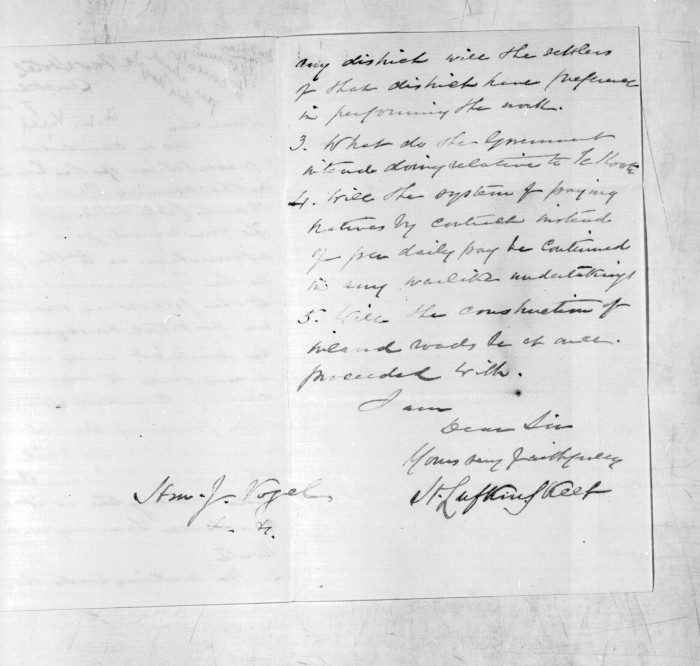 any district will the settlers
of that district have preference
in performing the work.
3. What do the Government
intend doing relative to Te Kooti
4. Will the system of paying
natives by contract instead
of per daily pay be continued
in any warlike undertakings
5. Will the construction of
inland roads be at once
proceeded with.
I am
Dear Sir
Yours very faithfully
Hon. J. Vogel